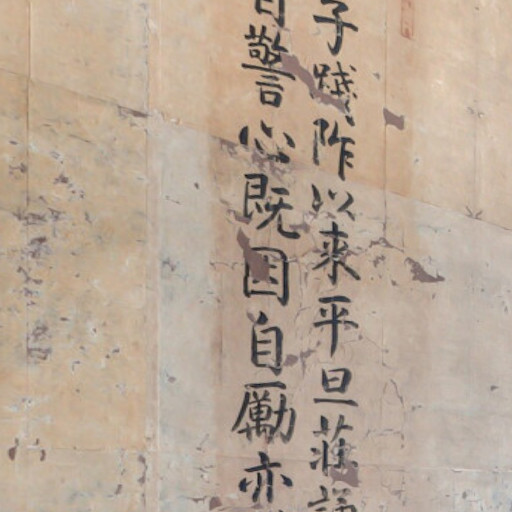 子踐阼以来平旦莊誦
警心既因自勵亦